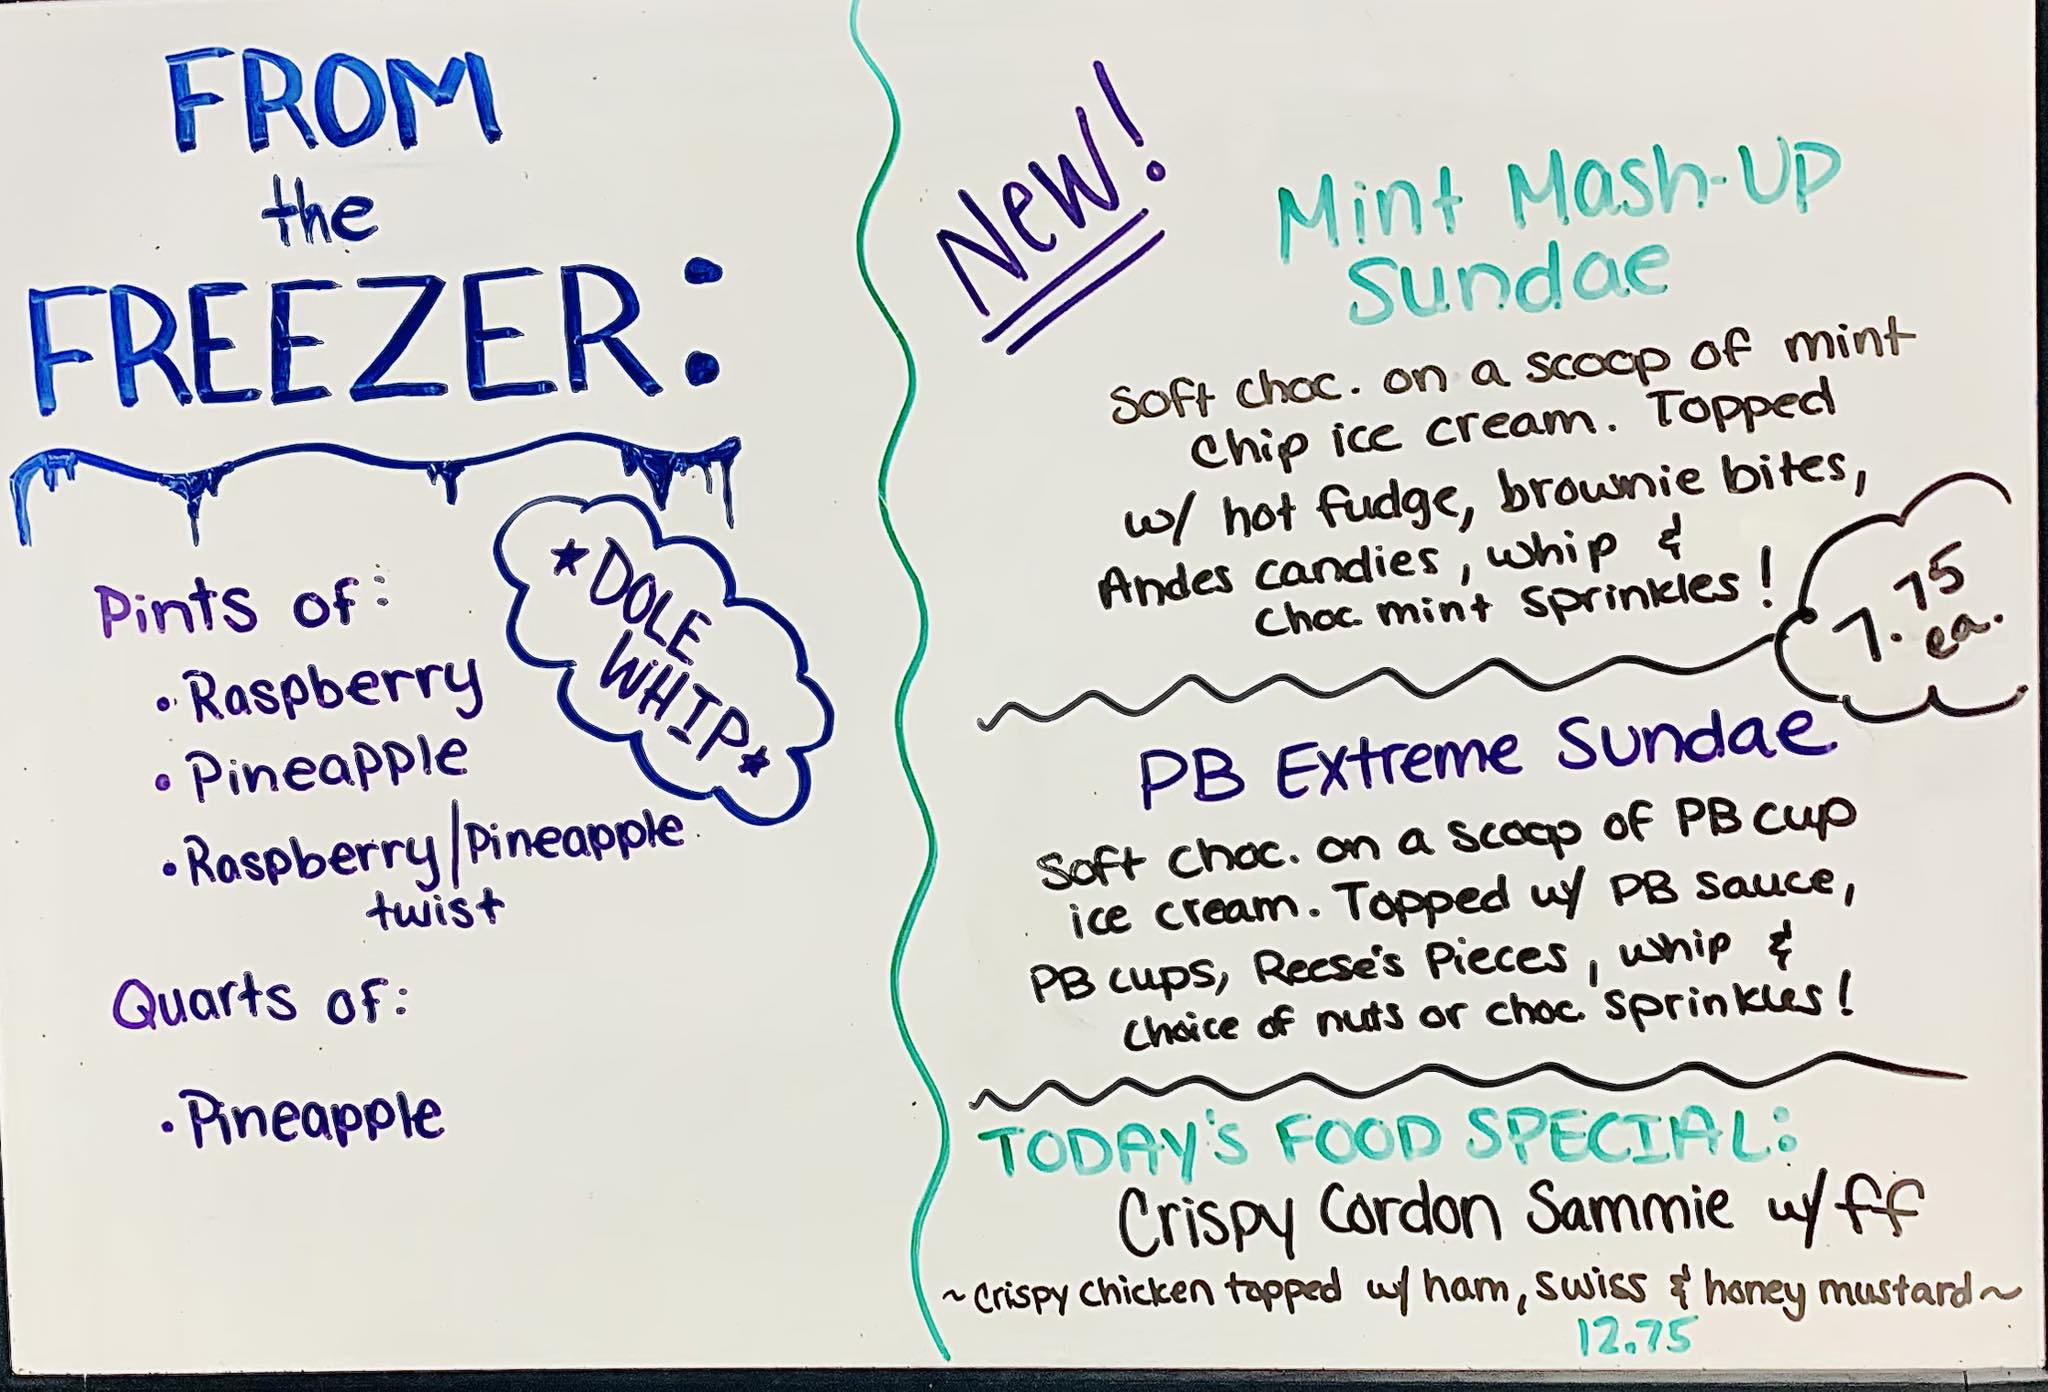 FROM
the
FREEZER:
Pints of:
• Raspberry
• Pineapple
• Raspberry/Pineapple
twist
★ DOLE
WHIP ★
Quarts of:
• Pineapple
New!
Mint Mash-Up
Sundae
Soft choc. on a scoop of mint
chip ice cream. Topped
w/ hot fudge, brownie bites,
Andes candies, whip &
choc mint sprinkles!
7.75
ea.
PB Extreme Sundae
Soft choc. on a scoop of PB cup
ice cream. Topped w/ PB sauce,
PB cups, Reese's Pieces, whip &
choice of nuts or choc. sprinkles!
TODAY'S FOOD SPECIAL:
Crispy Cordon Sammie w/ ff
~ Crispy chicken topped w/ ham, swiss & honey mustard ~
12.75